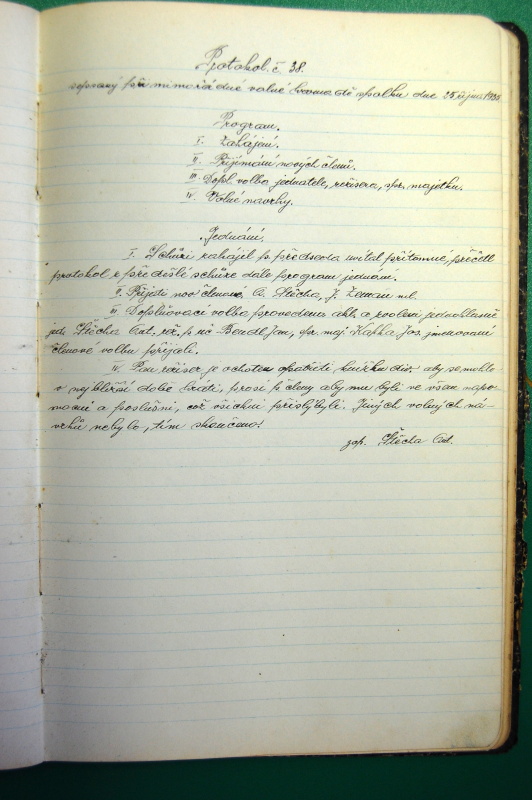 Protokol č. 38.
sepsaný při mimořádné valné hromadě spolku dne 25 října 1935
Program.
I. Zahájení.
II. Přijímání nových členů.
III. Dopl. volba jednatele, režisera, spr. majetku.
IV. Volné návrhy.
Jednání.
I. Schůzi zahájil p. předseda, uvítal přítomné, přečetl
protokol z předešlé schůze dále program jednání.
II. Přijati noví členové, A. Štěcha, J. Zeman ml.
III. Doplňovací volba provedena akl. a zvoleni jednohlasně
jedn. Štěcha Ant. rež. p. uč Bendl Jan, spr. maj. Kapka Jos. jmenovaní
členové volbu přijali.
IV. Pan režiser je ochoten opatřiti knížku div. aby se mohlo
v nejbližší době hráti, prosí p. členy aby mu byli ve všem nápo-
mocni a poslušni, což všichni přislýbyli. Jiných volných ná-
vrhů nebylo, tím skončeno.
zap. Štěcha Ant.